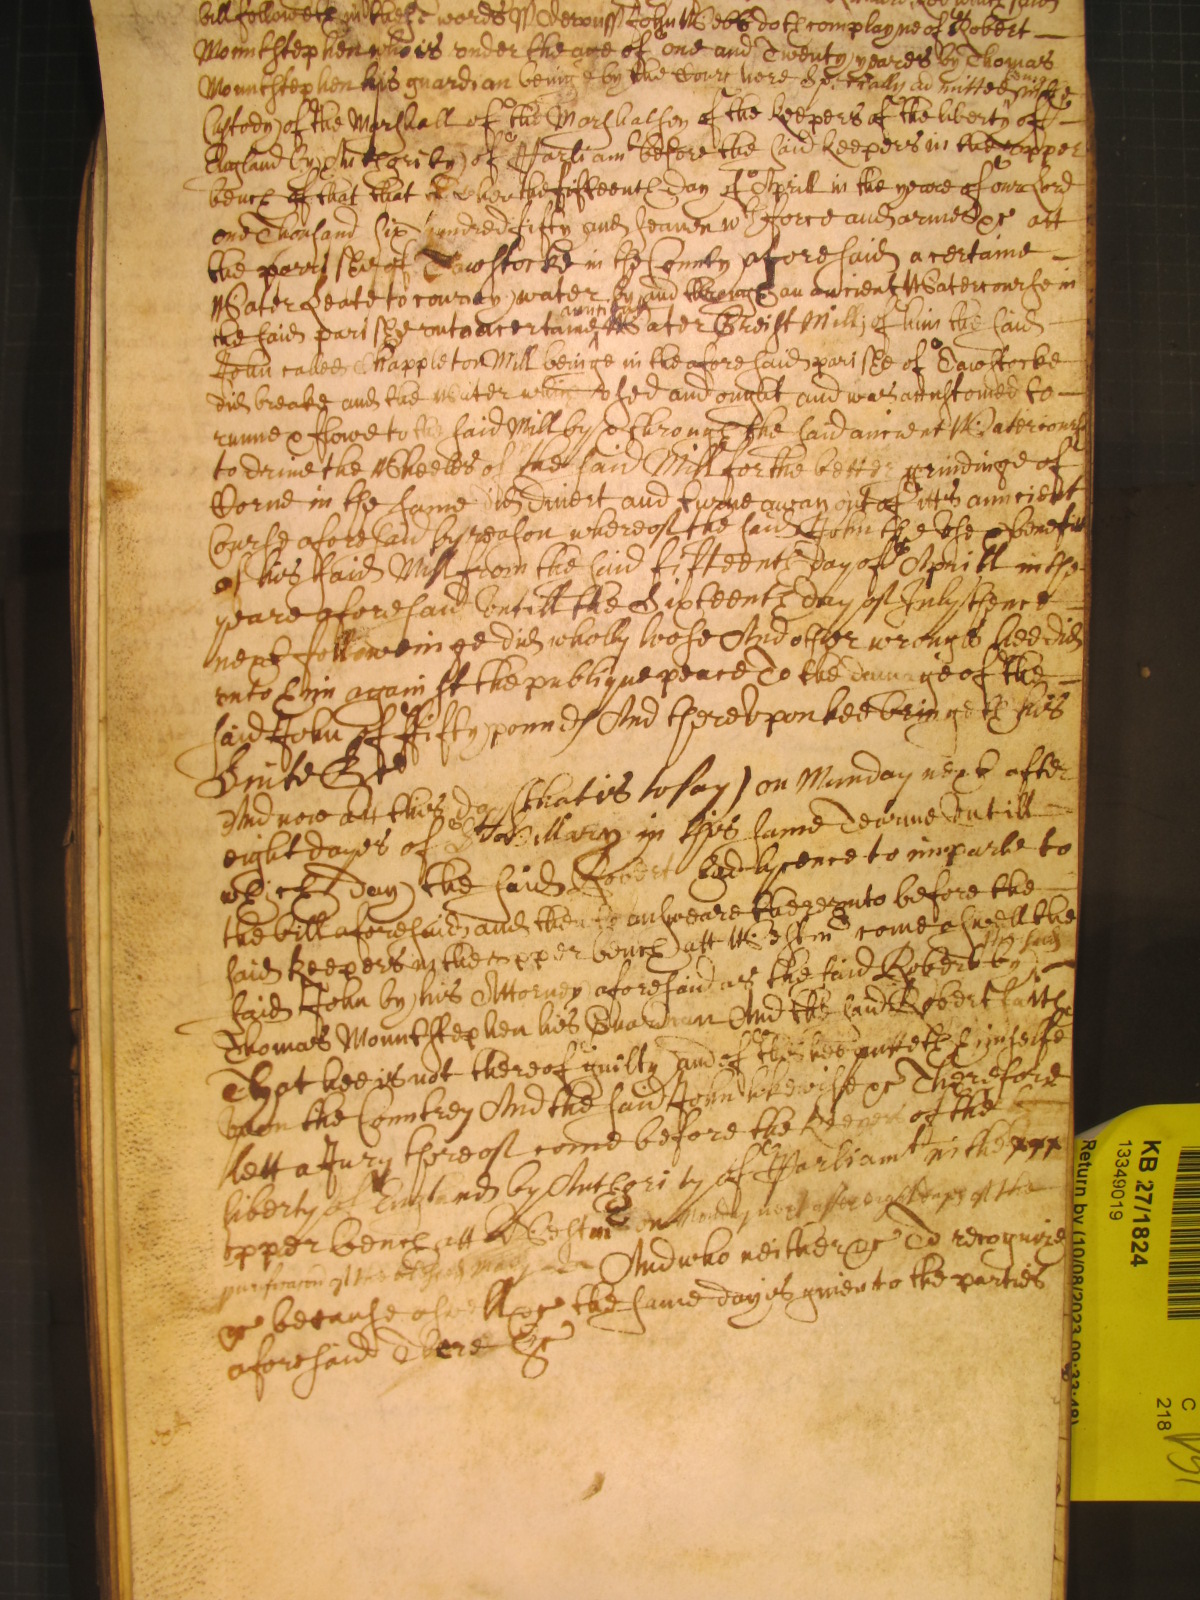 bill followeth in these words ss Devon ss John Webb doth complayne of Robert
Mountstephen who is vnder the age of one and Twenty yeares by Thomas
Mountstephen his guardian beinge by the Court here Specially admitted beinge in the
Custody of the Marshall of the Marshalsey of the keepers of the liberty of
England by Authority of Parliamt before the said keepers in the vpper
bench of that that the fifteenth day of Aprill in the yeare of our Lord
one Thousand Six hundred fifty and seaven wth force and armes &c att
the parrishe of Tawstocke in the County aforesaid a certaine
Water Leate to convey water by and through an ancient Watercourse in
the said parishe vnto a certaine auncient Water Greist Mill of him the said
John called Chappleton Mill beinge in the aforesaid parishe of Tawstocke
did breake and the Water which vsed and ought and was accustomed to
runne & flowe to the said Mill by & through the said ancient Watercourse
to drive the Wheeles of the said Mill for the better grindinge of
Corne in the same did divert and turne away out of itts auncient
Course aforesaid by reason whereof the said John the vse & benefitt
of his said Mill from the said fifteenth day of Aprill in the
yeare aforesaid vntill the Sixteenth day of July thence
next followeinge did wholly loose And other wrongs hee did
vnto him against the publique peace To the damage of the
said John of ffifty pounds And therevpon hee bringeth his
Suite &c
And now att this day (that is to say) on Munday next after
eight dayes of St Hillary in this same Tearme vntill
which day the said Robert had lycence to imparle to
the bill aforesaid and then to answeare therevnto before the
said keepers in the vpper bench att Westmr come aswell the
said John by his Attorney aforesaid as the said Robert by the said
Thomas Mountstephen his Guardian And the said Robert saith
That hee is not thereof guilty and of this hee putteth himselfe
vpon the Countrey And the said John likewise &c Therefore
lett a Jury thereof come before the keepers of the
liberty of England by Authority of Parliamt in the
vpper bench att Westmr on Monday next after eight dayes of the
purificacon of the blessed Mary And who neither &c To recognize
&c because aswell &c the same day is given to the parties
aforesaid There &c
KB 27/1824
13349019
Return by (10/08/2023 09:33:48)
C
218